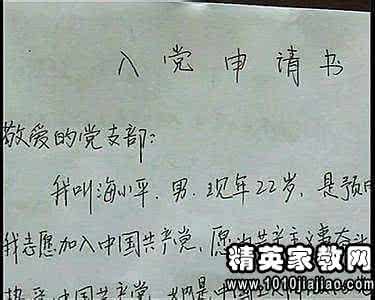 入党申请书
敬爱的党支部:
我叫海小平.男.现年22岁,是预
我志愿加入中国共产党,愿为共产主义事奋
中国共产党
精英家教网
www.1010jiajiao.com